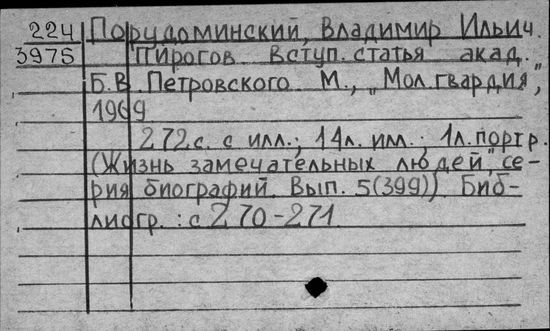 224 Порудоминский, Владимир Ильич.
3975 Пирогов Вступ. статья акад.
Б.В. Петровского М., „Мол.гвардия",
1969
272с. с илл.; 14л. илл.; 1л. портр.
(Жизнь замечательных людей, се-
рия биографий. Вып. 5(399)) Биб-
лиогр.: с 270-271.